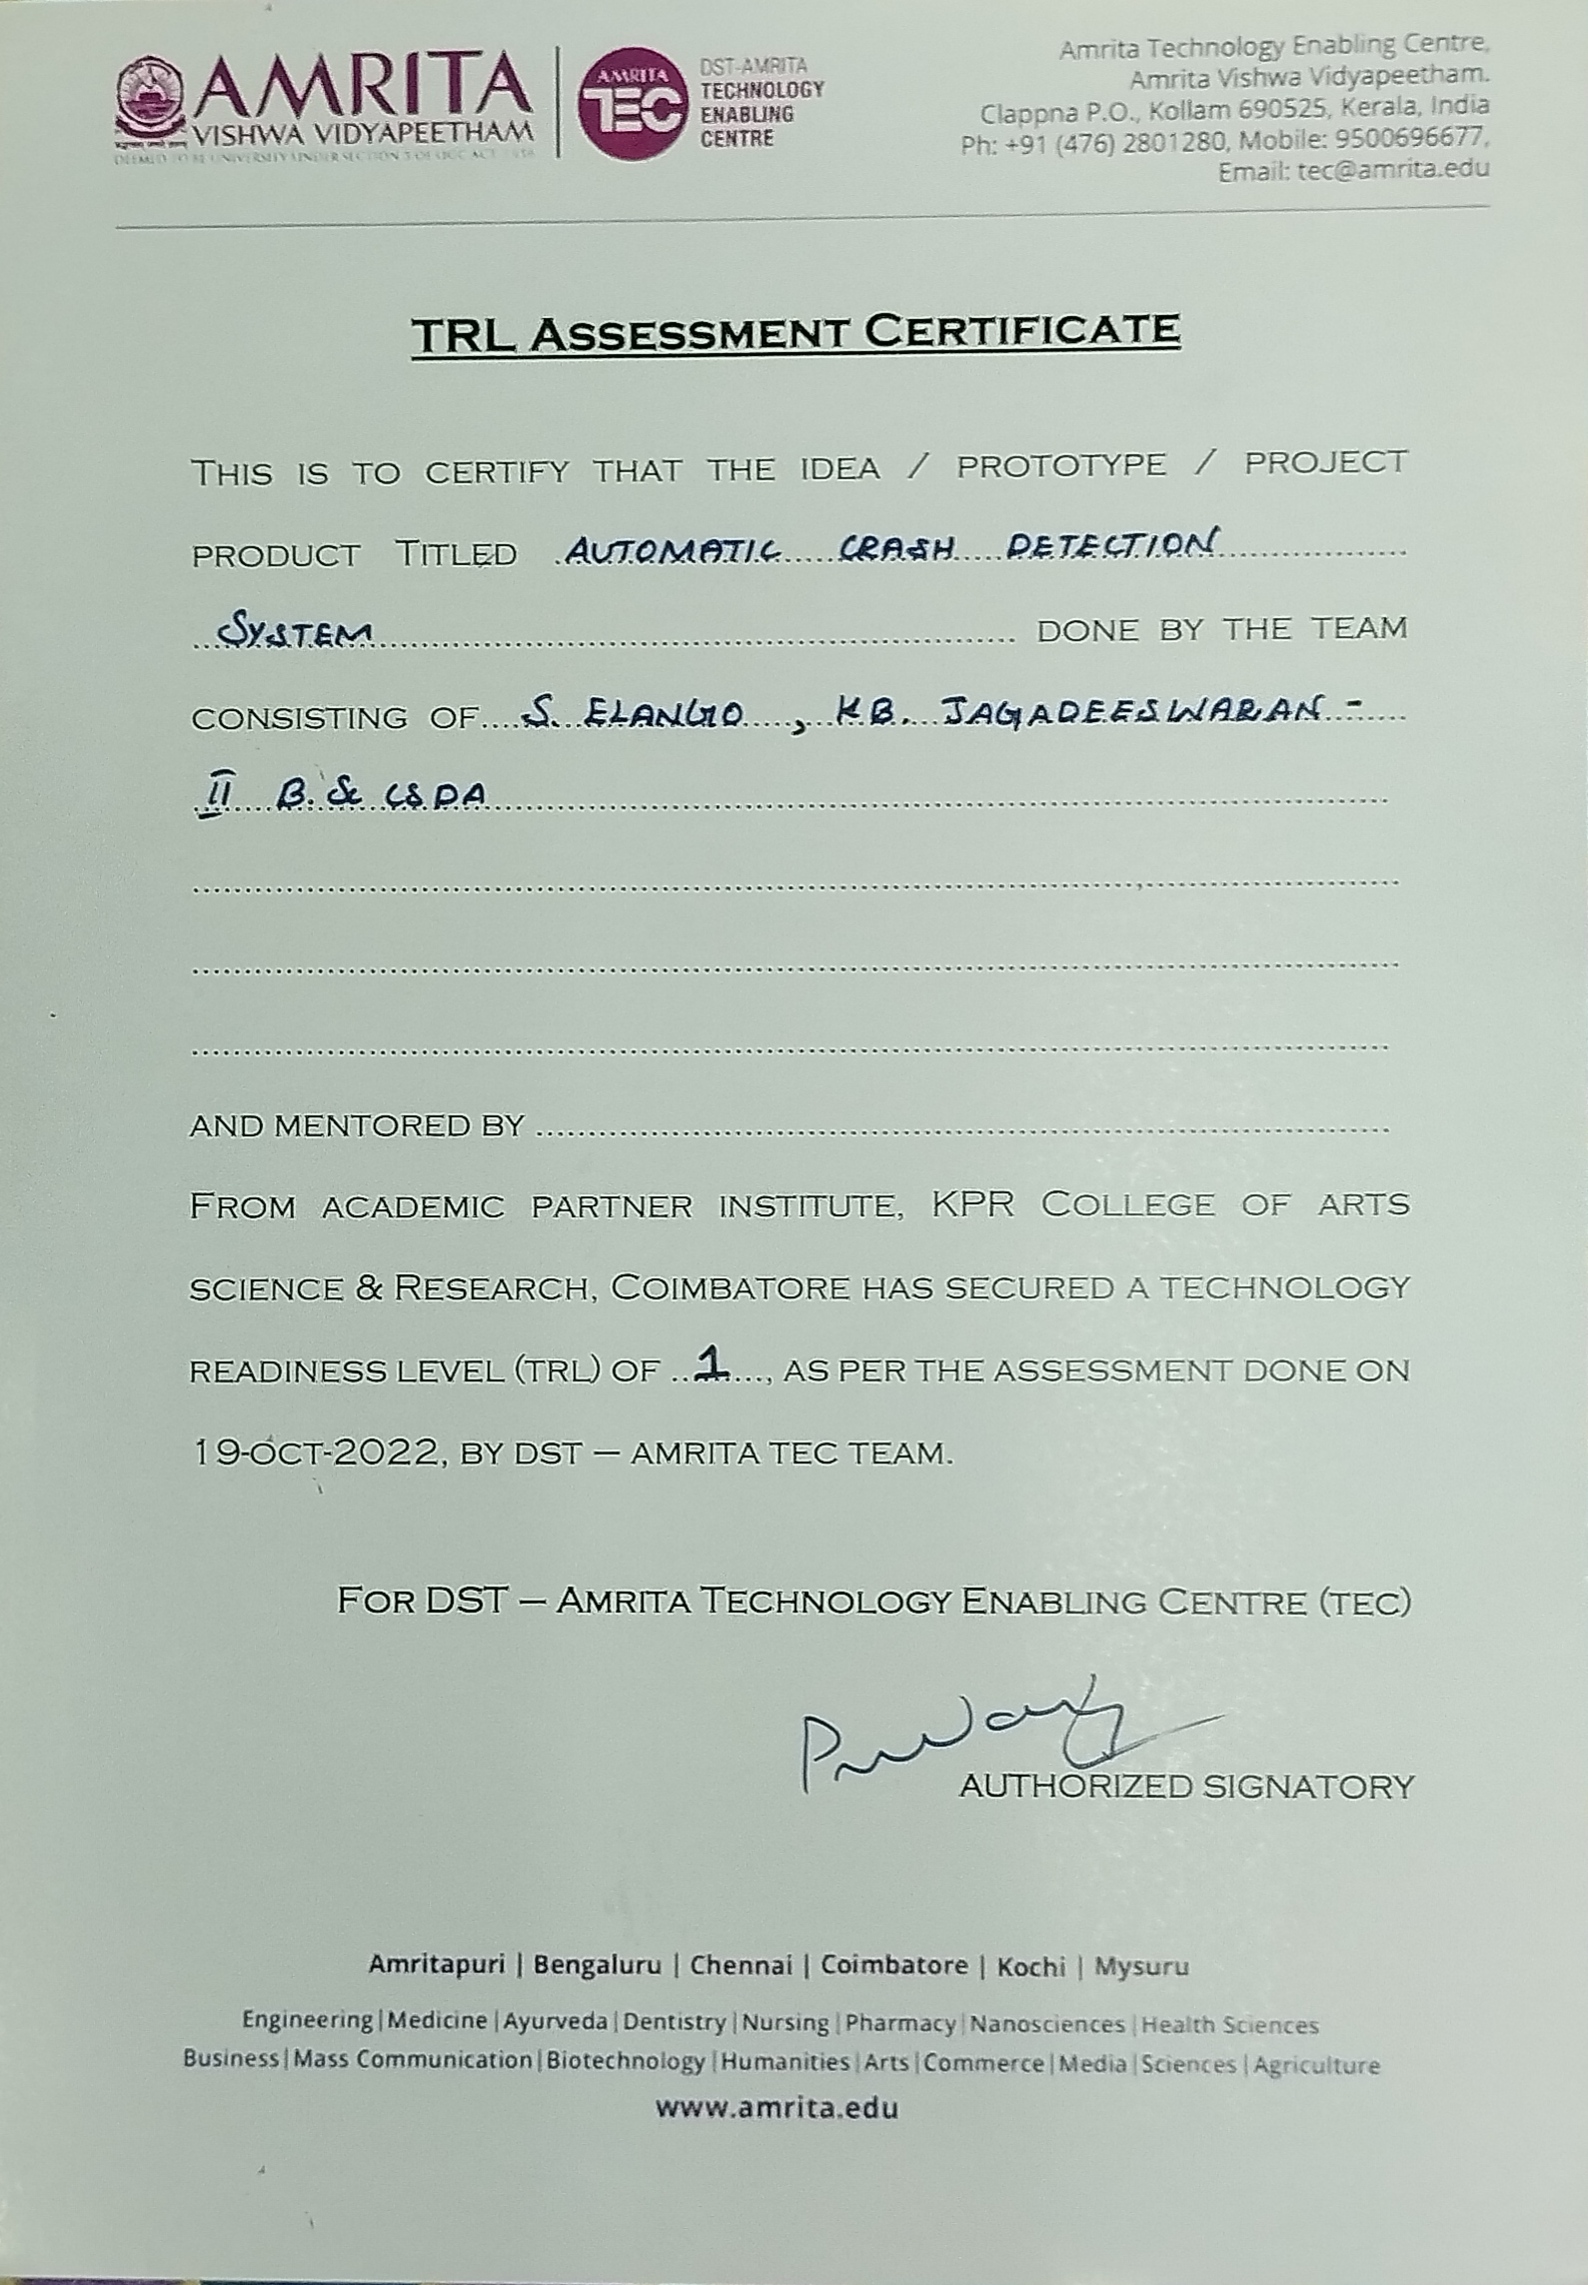 AMRITA
VISHWA VIDYAPEETHAM
DEEMED TO BE UNIVERSITY UNDER SECTION 3 OF UGC ACT 1956
AMRITA
TEC
DST-AMRITA
TECHNOLOGY
ENABLING
CENTRE
Amrita Technology Enabling Centre,
Amrita Vishwa Vidyapeetham.
Clappna P.O., Kollam 690525, Kerala, India
Ph: +91 (476) 2801280, Mobile: 9500696677,
Email: tec@amrita.edu
TRL ASSESSMENT CERTIFICATE
THIS IS TO CERTIFY THAT THE IDEA / PROTOTYPE / PROJECT
PRODUCT TITLED AUTOMATIC CRASH DETECTION
SYSTEM DONE BY THE TEAM
CONSISTING OF S. ELANGO, K.B. JAGADEESWARAN -
II B.Sc CSDA
AND MENTORED BY
FROM ACADEMIC PARTNER INSTITUTE, KPR COLLEGE OF ARTS
SCIENCE & RESEARCH, COIMBATORE HAS SECURED A TECHNOLOGY
READINESS LEVEL (TRL) OF 1, AS PER THE ASSESSMENT DONE ON
19-OCT-2022, BY DST – AMRITA TEC TEAM.
FOR DST – AMRITA TECHNOLOGY ENABLING CENTRE (TEC)
AUTHORIZED SIGNATORY
Amritapuri | Bengaluru | Chennai | Coimbatore | Kochi | Mysuru
Engineering|Medicine|Ayurveda|Dentistry|Nursing|Pharmacy|Nanosciences|Health Sciences
Business|Mass Communication|Biotechnology|Humanities|Arts|Commerce|Media|Sciences|Agriculture
www.amrita.edu